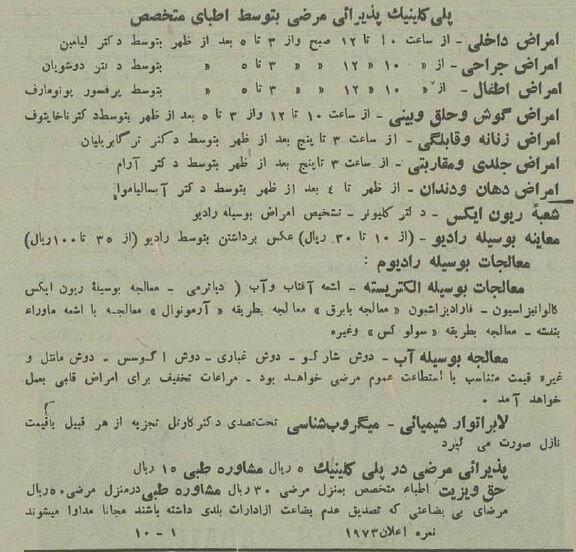 پلی کلینیك پذیرائی مرضی بتوسط اطبای متخصص
امراض داخلی - از ساعت ۱۰ تا ۱۲ صبح واز ۳ تا ۵ بعد از ظهر بتوسط دکتر لیامین
امراض جراحی - از « ۱۰ « ۱۲ « « ۳ تا ۵ « بتوسط دکتر دوشویان
امراض اطفال - از « ۱۰ « ۱۲ « « ۳ تا ۵ « بتوسط پرفسور پونومارف
امراض گوش وحلق وبینی - از ساعت ۱۰ تا ۱۲ واز ۳ تا ۵ بعد از ظهر بتوسط دکتر ناخایتوف
امراض زنانه وقابلگی - از ساعت ۳ تا پنج بعد از ظهر بتوسط دکتر نرگابریلیان
امراض جلدی ومقاربتی - از ساعت ۳ تا پنج بعد از ظهر بتوسط دکتر آرام
امراض دهان ودندان - از ظهر تا ٤ بعد از ظهر بتوسط دکتر آبسالیاموا
شعبۀ ریون ایکس - دکتر کلیونر - تشخیص امراض بوسیله رادیو
معاینه بوسیله رادیو - (از ۱۰ تا ۳۰ ریال) عکس برداشتن بتوسط رادیو (از ۳۵ تا ۱۰۰ ریال)
معالجات بوسیله رادیوم :
معالجات بوسیله الکتریسته - اشعه آفتاب وآب ( دیاترمی - معالجه بوسیلۀ ریون ایکس
کالوانیزاسیون - فارادیزاشیون « معالجه بابرق » معالجه بطریقه « آرمونوال » معالجه با اشعه ماوراء
بنفشه - معالجه بطریقه « سولو کس » وغیره
معالجه بوسیله آب - دوش شارکو - دوش غباری - دوش اکوسس - دوش مانتل و
غیره قیمت متناسب با استطاعت عموم مرضی خواهد بود - مراعات تخفیف برای امراض قلبی بعمل
خواهد آمد .
لابراتوار شیمیائی - میگروب‌شناسی تحت‌تصدی دکتر کارتل تجزیه از هر قبیل باقیمت
نازل صورت می گیرد
پذیرائی مرضی در پلی کلینیك ۵ ریال مشاوره طبی ۱۵ ریال
حق ویزیت اطباء متخصص بمنزل مرضی ۳۰ ریال مشاوره طبی درمنزل مرضی ۵۰ ریال
مرضای بی بضاعتی که تصدیق عدم بضاعت ازادارات بلدی داشته باشند مجانا مداوا میشوند
نمره اعلان ۱۹۷۳ ۱ - ۱۰